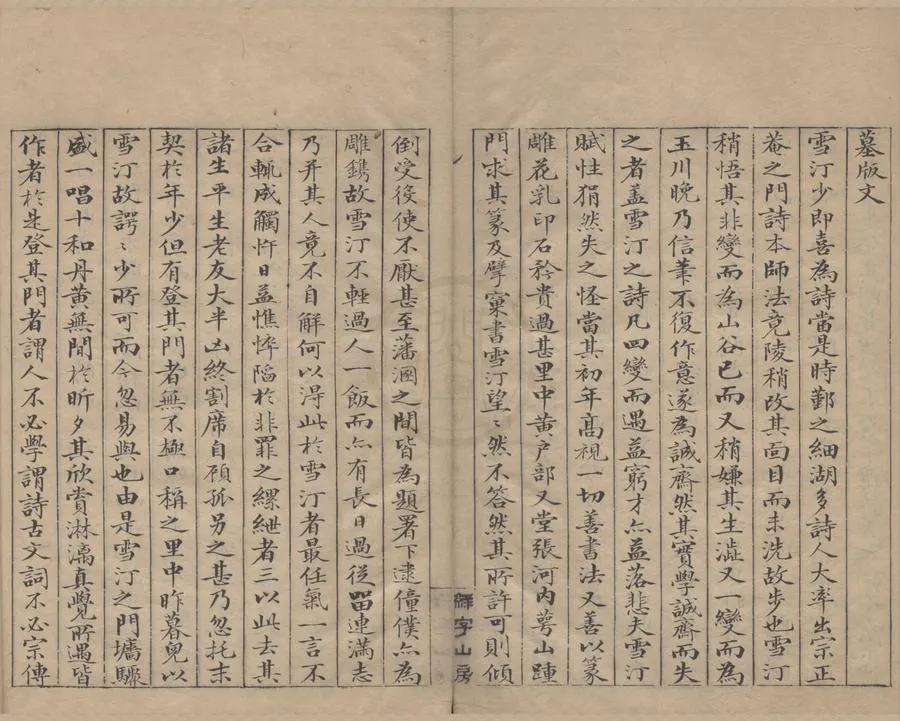 墓版文
雪汀少即喜為詩當是時鄞之細湖多詩人大率出宗正
菴之門詩本師法竟陵稍改其面目而未洗故步也雪汀
稍悟其非變而為山谷已而又稍嫌其生澁又一變而為
玉川晚乃信筆不復作意遂為誠齋然其實學誠齋而失
之者盖雪汀之詩凡四變而遇益窮才亦益落悲夫雪汀
賦性狷然失之怪當其初年髙視一切善書法又善以篆
雕花乳印石矜貴過甚里中黄户部又堂張河内萼山踵
門求其篆及擘窠書雪汀望〻然不答然其所許可則傾
倒受役使不厭甚至藩溷之間皆為題署下逮僮僕亦為
雕鐫故雪汀不輕過人一飯而亦有長日過從畱連滿志
乃并其人竟不自解何以得此於雪汀者最任氣一言不
合輒成觸忤日益憔悴陷於非罪之縲絏者三以此去其
諸生平生老友大半凶終割席自顧孤另之甚乃忽托末
契於年少但有登其門者無不極口稱之里中昨暮兒以
雪汀故諤〻少所可而今忽易與也由是雪汀之門墻驟
盛一唱十和丹黄無間於昕夕其欣賞淋漓真覺所遇皆
作者於是登其門者謂人不必學謂詩古文詞不必宗傳
字山房